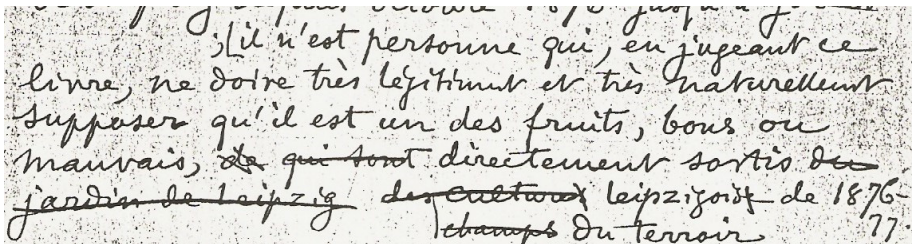 depuis octobre 1876 jusqu'à
;[il n'est personne qui, en jugeant ce
livre, ne doive très légitimmt et très naturellemt
supposer qu'il est un des fruits, bons ou
mauvais, de qui sont directement sortis du
jardin de Leipzig des cultures leipzigois de 1876-
champs du terroir 77.